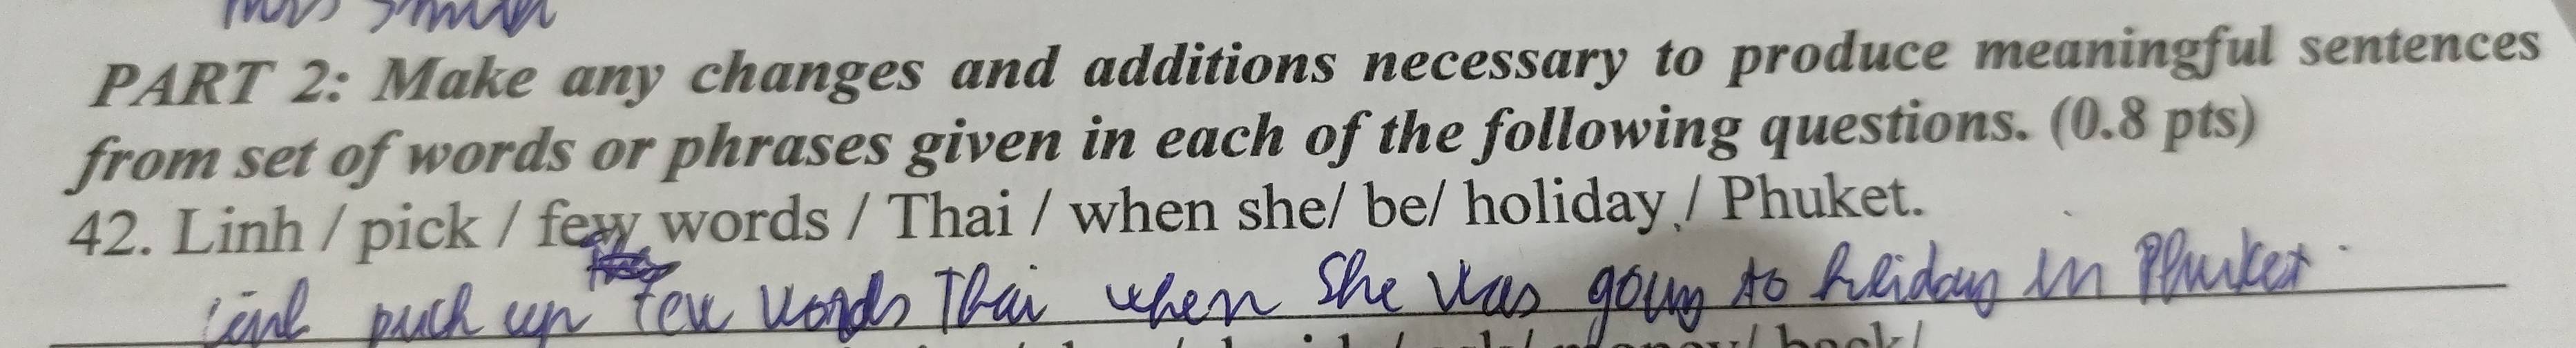 Mrs Smith
PART 2: Make any changes and additions necessary to produce meaningful sentences
from set of words or phrases given in each of the following questions. (0.8 pts)
42. Linh / pick / few words / Thai / when she/ be/ holiday / Phuket.
Linh pick up few words Thai when she was going to holiday in Phuket.